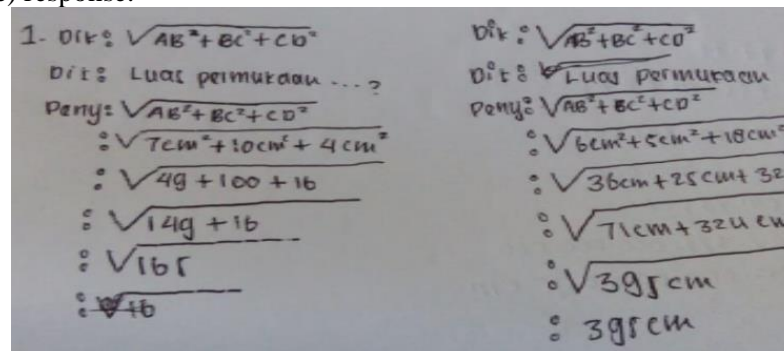 response.
1. Dik: √AB²+BC²+CD²
Dit: Luas permukaan ...?
Peny: √AB²+BC²+CD²
: √7cm²+10cm²+4cm²
: √49+100+16
: √149+16
: √165
Dik: √AB²+BC²+CD²
Dit: Luas permukaan
Peny: √AB²+BC²+CD²
: √6cm²+5cm²+18cm²
: √36cm+25cm+32
: √71cm+324cm
: √395cm
: 395cm